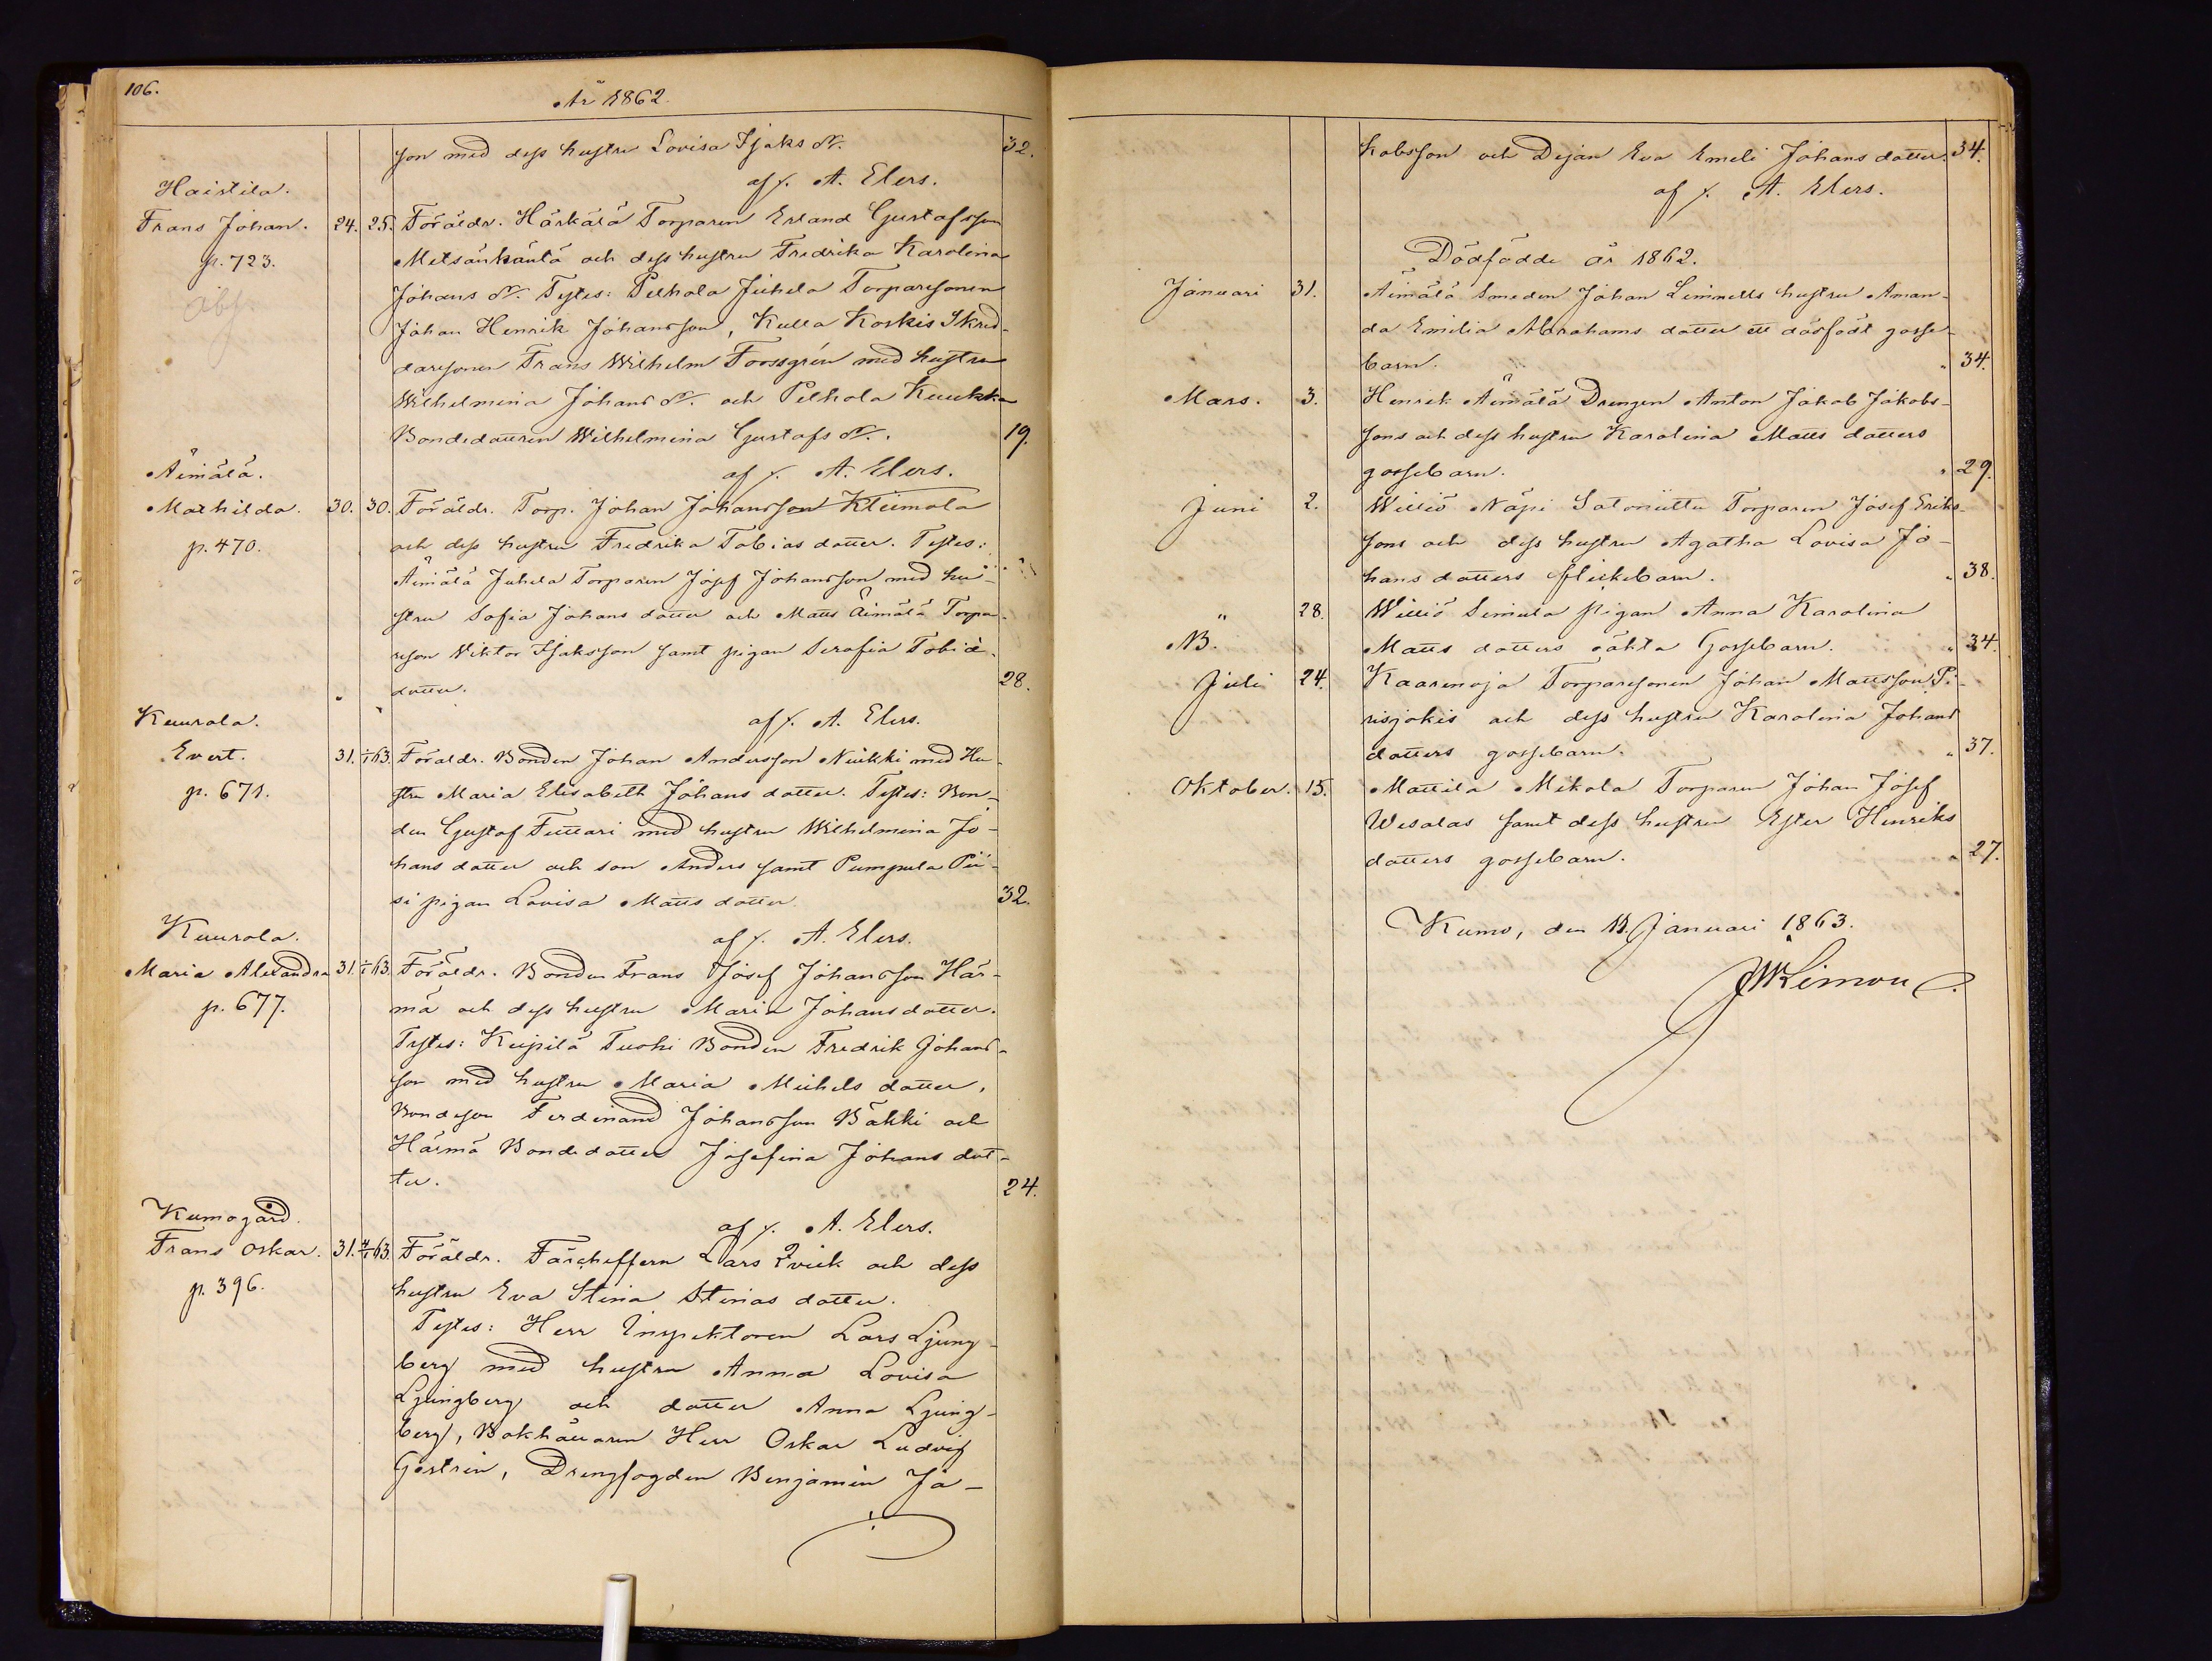 106.
År 1862.
son med dess hustru Lovisa Isaks dr. 32.
af f. A. Elers.
Haistila.
Frans Johan. 24. 25. Föräldr. Härkälä Torparen Erland Gustafsson
p. 723. Metsänkäntä och dess hustru Fredrika Karolina
Johans dr. Testes: Pelhola Juhela Torparesonen
Johan Henrik Johansson, Kulla Koskis Skred-
daresonen Frans Wilhelm Forssgrén med hustru
Wilhelmina Johans dr. och Pelhola Kuukka
Bondedottren Wilhelmina Gustafs dr. 19.
af f. A. Elers.
Äimälä.
Mathilda. 30. 30. Föräldr. Torp. Johan Johansson Kleimola
p. 470. och dess hustru Fredrika Tobias dotter. Testes:
Äimälä Juhela Torparen Josef Johansson med hu-
stru Sofia Johans dotter och Matts Äimälä Torpa-
reson Viktor Isaksson samt pigan Serafia Tobiæ
dotter. 28.
af f. A. Elers.
Kuurola.
Evert. 31. 1/1 63. Föräldr. Bonden Johan Andersson Nuikki med Hu-
p. 671. stru Maria Elisabeth Johans dotter. Testes: Bon-
den Gustaf Tuttari med hustru Wilhelmina Jo-
hans dotter och son Anders samt Pumpula Pii-
si pigan Lovisa Matts dotter. 32.
af f. A. Elers.
Kuurola.
Maria Alexandra 31. 1/1 63. Föräldr. Bonden Frans Josef Johansson Här-
p. 677. mä och dess hustru Maria Johansdotter.
Testes: Keipilä Tuohi Bonden Fredrik Johans-
son med hustru Maria Michels dotter,
Bondeson Ferdinand Johansson Bakki och
Härmä Bondedotter Josefina Johans dot-
ter. 24.
af f. A. Elers.
Kumogård.
Frans Oskar. 31. 4/1 63. Föräldr. Fårscheffern Lars Qvick och dess
p. 396. hustru Eva Stina Stinas dotter.
Testes: Herr Inspektoren Lars Ljung-
berg med hustru Anna Lovisa
Ljungberg och dotter Anna Ljung-
berg, Bokhållaren Herr Oskar Ludvig
Gestrin, Drengfogden Benjamin Ja-
kobsson och Dejan Eva Emeli Johans dotter. 34.
af f. A. Elers.
Dödfödde år 1862.
Januari 31. Äimälä Smeden Johan Limnells hustru Aman-
da Emilia Abrahams dotter ett dödfödt gosse-
barn. " 34.
Mars. 3. Henrik Äimälä Drengen Anton Jakob Jakobs-
sons och dess hustru Karolina Matts dotters
gossebarn. " 29.
Juni 2. Williö Näpi Satoniittu Torparen Josef Eriks-
sons och dess hustru Agatha Lovisa Jo-
hans dotters flickebarn. " 38.
" 28. Williö Simula pigan Anna Karolina
NB. Matts dotters oäkta Gossebarn. " 34.
Juli 24. Kaarenoja Torparesonen Johan Mattsson Pi-
risjokis och dess hustru Karolina Johans
dotters gossebarn. " 37.
Oktober. 15. Mattila Mikola Torparen Johan Josef
Wesalas samt dess hustru Ester Henriks
dotters gossebarn. " 27.
Kumo, den 13. Januari 1863.